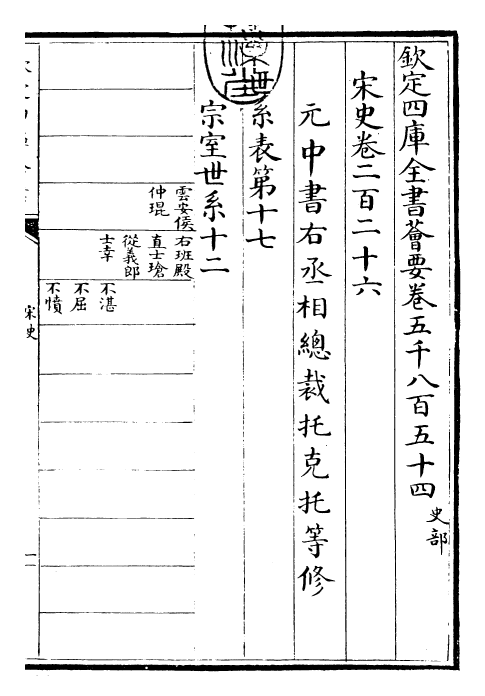 欽定四庫全書薈要卷五千八百五十四
史部
宋史卷二百二十六
元中書右丞相總裁托克托等修
世系表第十七
宗室世系十二
雲安侯
仲琨
右班殿
直士瑲
從義郎
士幸
不湛
不屈
不憤
宋史
一